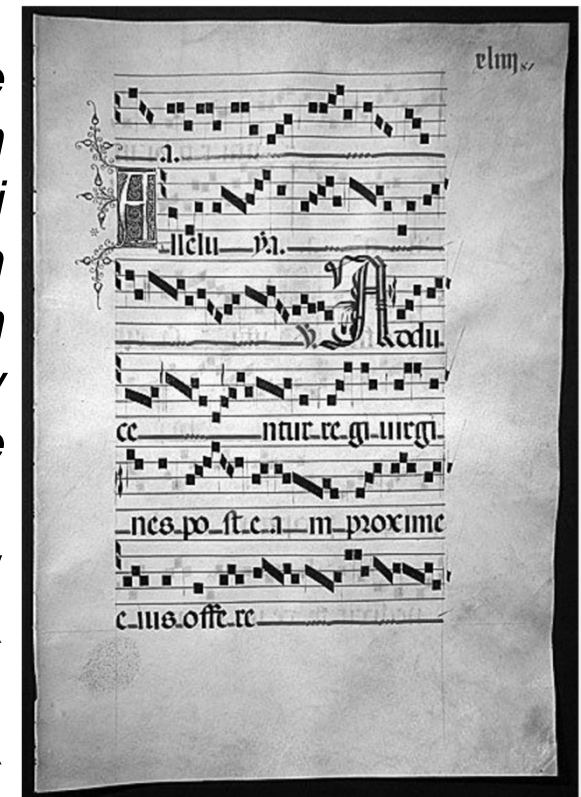 a.
Allelu ya.
℣. Addu
ce ntur re gi uirgi
nes po st e a m proxime
e ius offe re